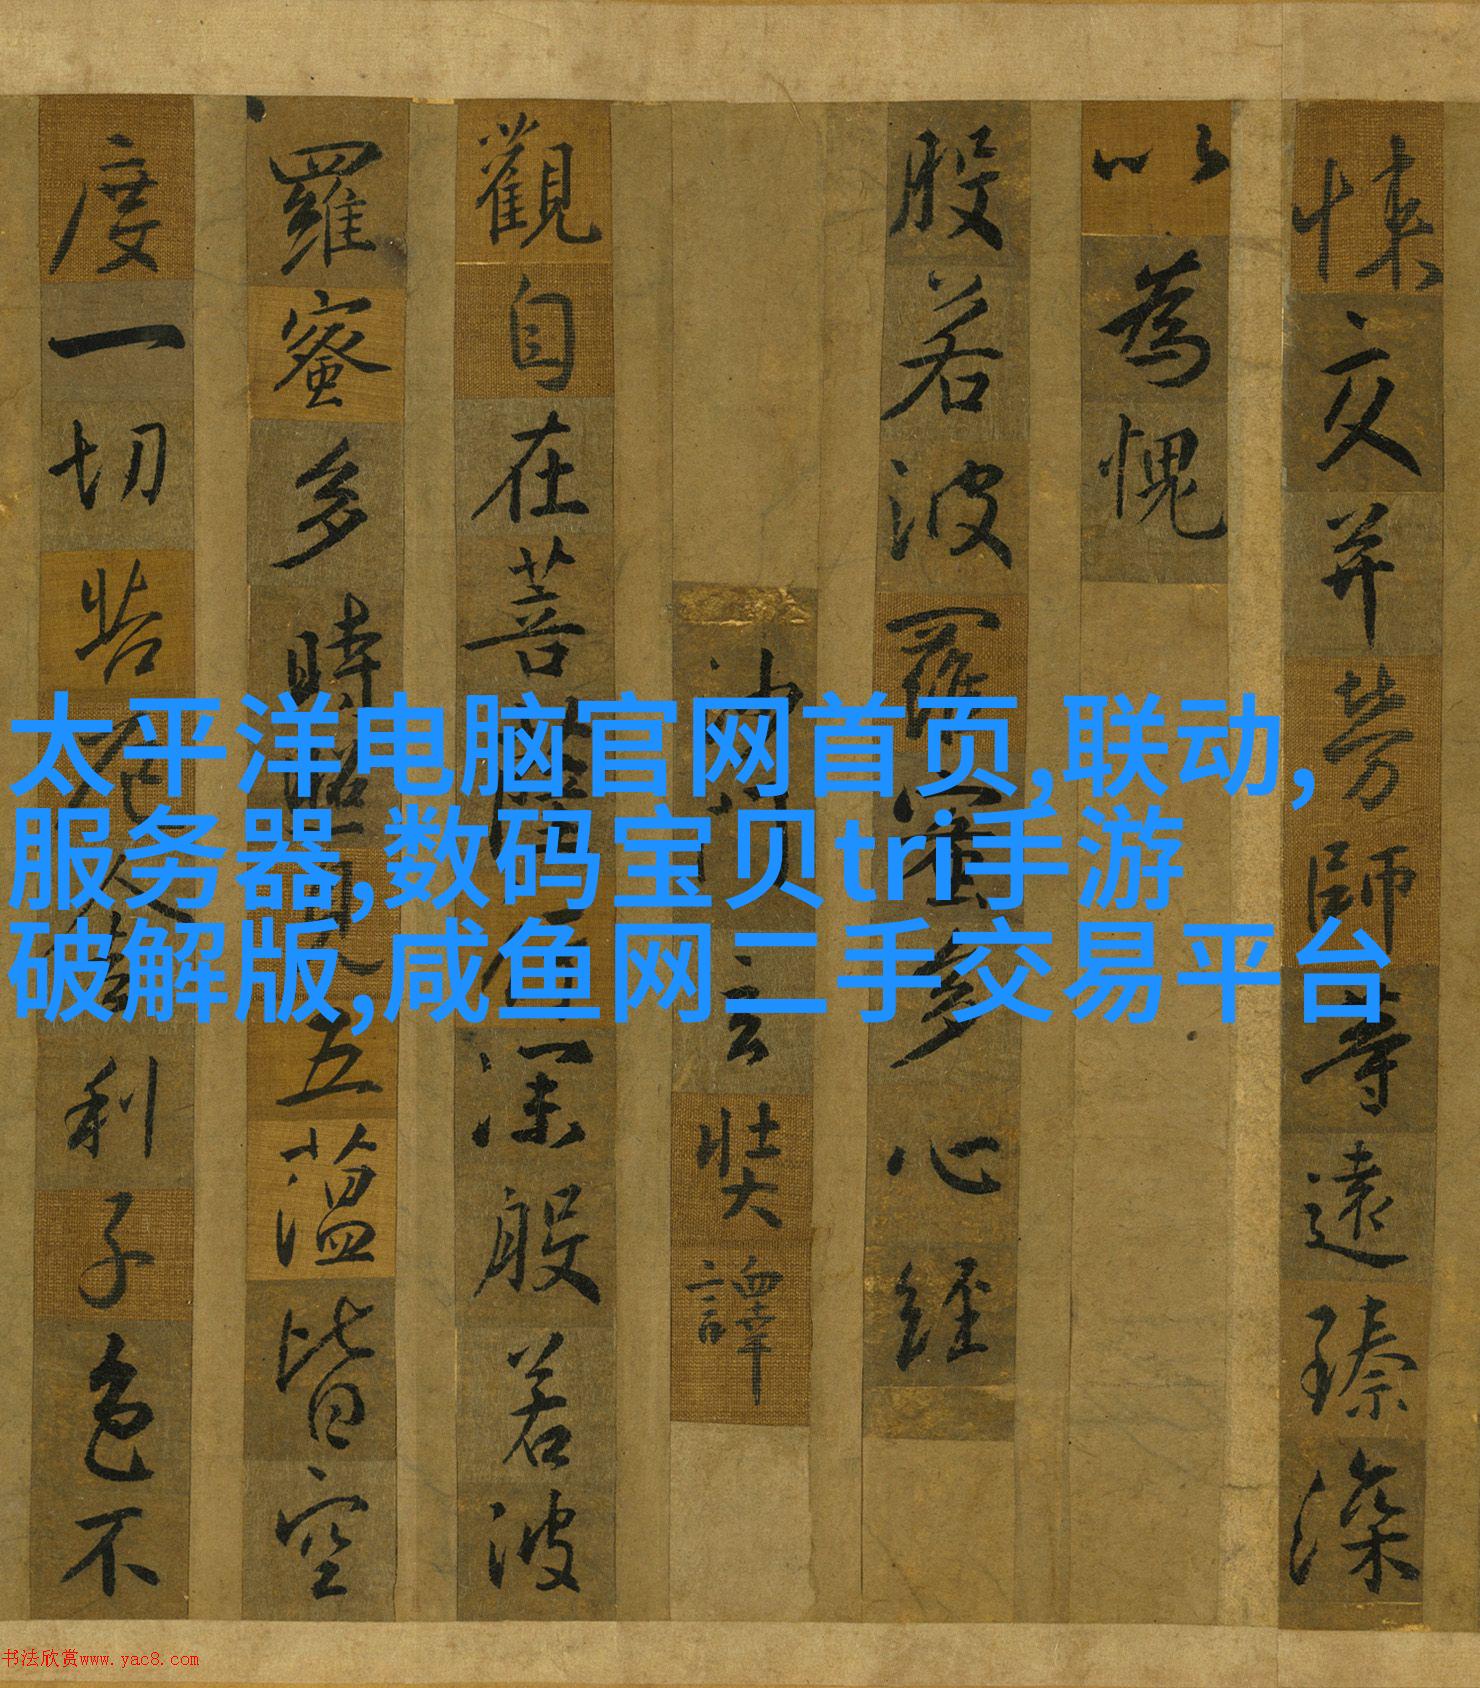 悚交并勞師等遠臻深
以為愧
般若波羅蜜多心經
沙門玄奘譯
觀自在菩薩行深般若波
羅蜜多時照見五蘊皆空
度一切苦厄舍利子色不
太平洋电脑官网首页,联动,
服务器,数码宝贝tri手游
破解版,咸鱼网二手交易平台
书法欣赏www.yac8.com